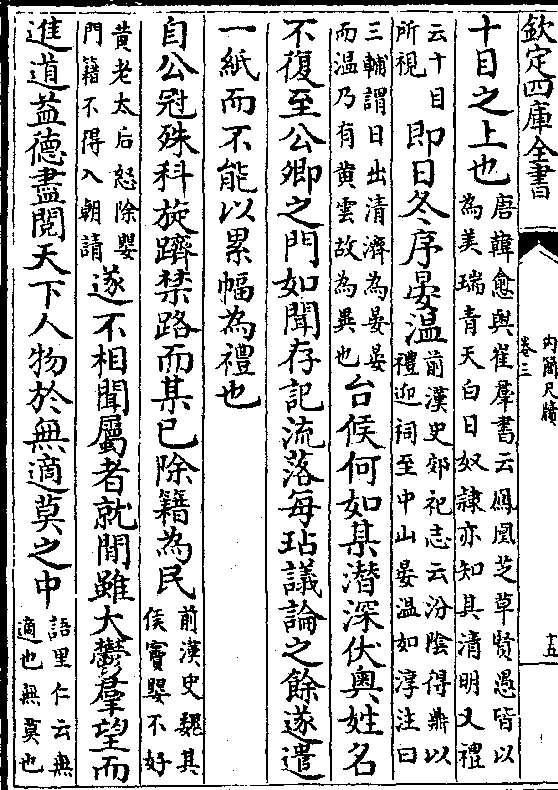 欽定四庫全書
內簡尺牘
卷三
十五
十目之上也
唐韓愈與崔羣書云鳳凰芝草賢愚皆以
為美瑞青天白日奴隸亦知其清明又禮
云十目
所視
即日冬序晏温
前漢史郊祀志云汾陰得鼎以
禮迎祠至中山晏温如淳注曰
三輔謂日出清濟為晏晏
而温乃有黄雲故為異也
台候何如某潛深伏奥姓名
不復至公卿之門如聞存記流落每玷議論之餘遂遣
一紙而不能以累幅為禮也
自公冠殊科旋躋禁路而某已除籍為民
前漢史魏其
侯竇嬰不好
黄老太后怒除嬰
門籍不得入朝請
遂不相聞屬者就閒雖大鬱羣望而
進道益德盡閲天下人物於無適莫之中
語里仁云無
適也無莫也